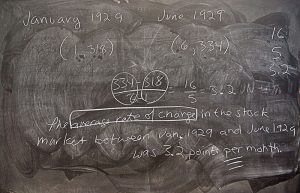 January 1929 June 1929
(1, 318) (6, 334)
334-318 / 6-1 = 16/5 = 3.2
16
5
3.2
The average rate of change in the stock
market between Jan, 1929 and June 1929
was 3.2 points per month.